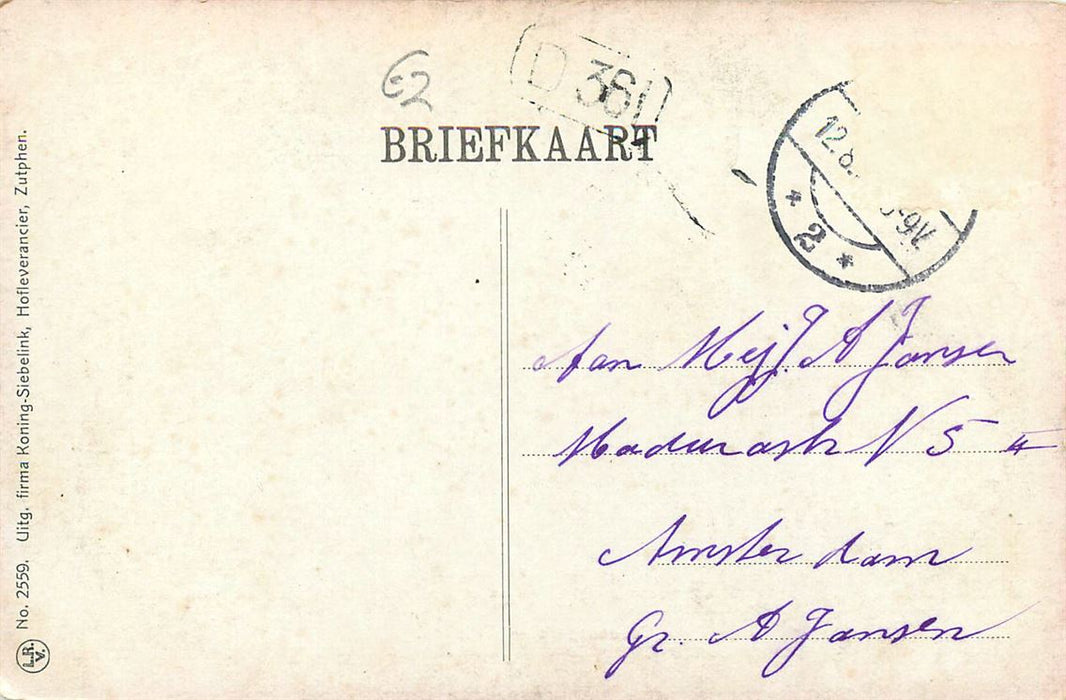 62
D 361
BRIEFKAART
12.8.
5-9N
* 2 *
Aan Mej J. A Jansen
Madurastr N 5 II
Amsterdam
Gr. A Jansen
No. 2559. Uitg. firma Koning-Siebelink, Hofleverancier, Zutphen.
L.R.
V.